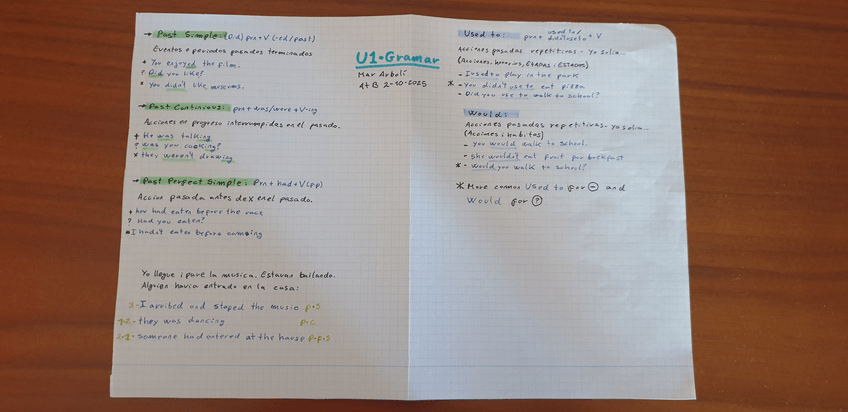 → Past Simple: (Did) prn + V (-ed/past)
Eventos o periodos pasados terminados
+ You enjoyed the film.
? Did you like?
* you didn't like museums.
→ Past Continous: prn + was/were + V-ing
Acciones en progreso interrumpidas en el pasado.
+ He was talking
? was you cooking?
* they weren't drawing
→ Past Perfect Simple: Prn + had + V (pp)
Accion pasada antes de x en el pasado.
had eaten before the
? Had you eaten?
* I hadn't eater before
Yo llegue i paré la musica. Estavan bailando.
Alguien havia entrado en la casa:
3 - I arribed and stoped the music p·s
they was dancing p·c
someone had entered at the house p·p·s
U1·Gramar
Mar Arbolí
4t B 2-10-2025
Used to: prn + used to/didn't use to + V
Acciones pasadas repetitivas - Yo solia...
(Acciones, havitos, ETAPAS i ESTADOS)
- I used to play in the park
* - you didn't use to eat pizza
- Did you use to walk to school?
Would:
Acciones pasadas repetitivas - yo solia...
(Acciones i habitos)
- you would walk to school.
- she wouldn't eat fruit for brekfast
* - would you walk to school?
* More common Used to for ⊖ and
Would for ?